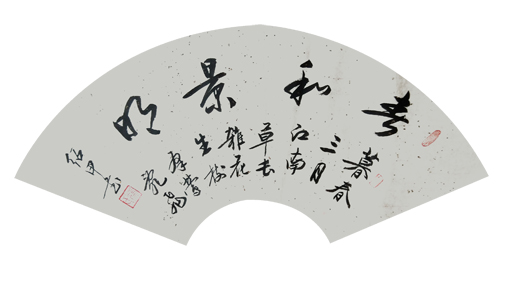 春和景明
暮春
三月
江南
草长
雜花
生树
群莺
亂飛